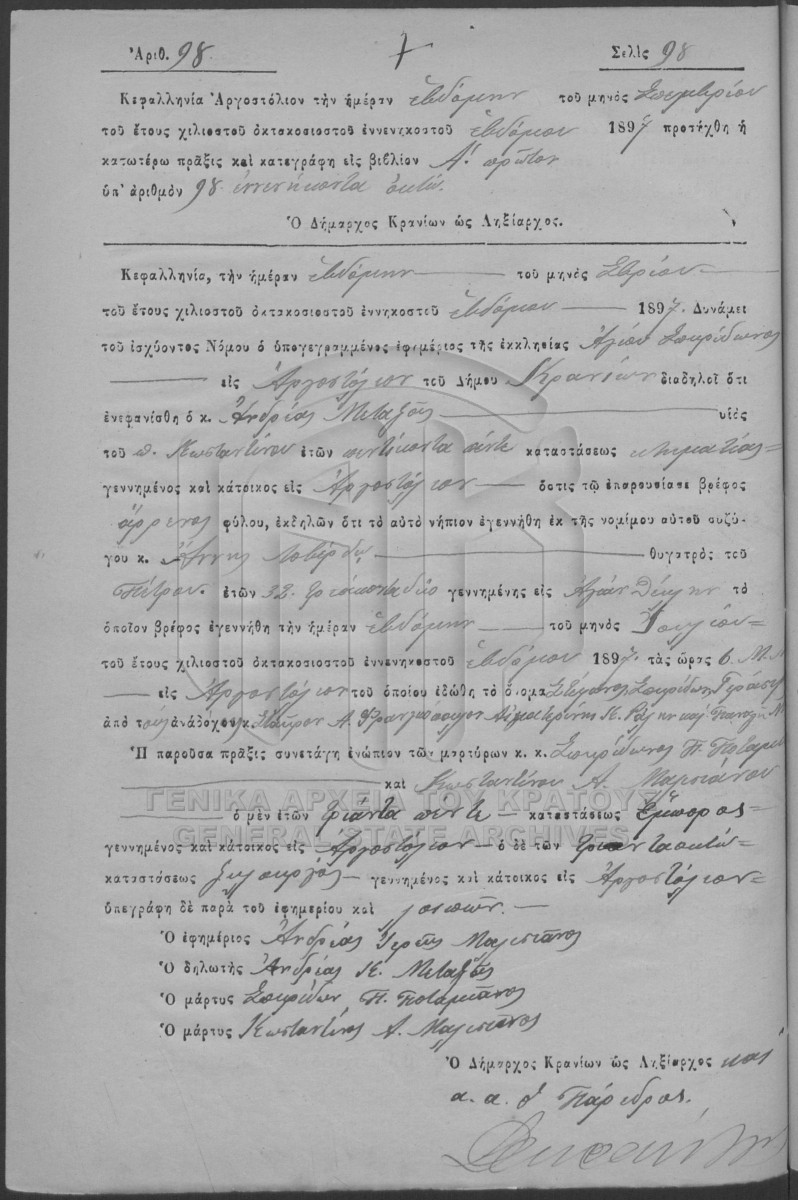 Ἀριθ. 98. Σελὶς 98
Κεφαλληνία Ἀργοστόλιον τὴν ἡμέραν ἑβδόμην τοῦ μηνὸς Σεπτεμβρίου
τοῦ ἔτους χιλιοστοῦ ὀκτακοσιοστοῦ ἐννενηκοστοῦ ἑβδόμου 1897 προσήχθη ἡ
κατωτέρω πρᾶξις καὶ κατεγράφη εἰς βιβλίον Α. πρῶτον
ὑπ' ἀριθμὸν 98. ἐννενήκοντα ὀκτώ.
Ὁ Δήμαρχος Κρανίων ὡς Ληξίαρχος.
Κεφαλληνία, τὴν ἡμέραν ἑβδόμην τοῦ μηνὸς 7βρίου
τοῦ ἔτους χιλιοστοῦ ὀκτακοσιοστοῦ ἐννηκοστοῦ ἑβδόμου 1897. Δυνάμει
τοῦ ἰσχύοντος Νόμου ὁ ὑπογεγραμμένος ἐφημέριος τῆς ἐκκλησίας Ἁγίου Σπυρίδωνος
εἰς Ἀργοστόλιον τοῦ Δήμου Κρανίων διαδηλοῖ ὅτι
ἐνεφανίσθη ὁ κ. Ἀνδρέας Μεταξᾶς υἱὸς
τοῦ π. Κωσταντίνου ἐτῶν πεντήκοντα πέντε καταστάσεως κτηματίας
γεννημένος καὶ κάτοικος εἰς Ἀργοστόλιον ὅστις τῷ ἐπαρουσίασε βρέφος
ἄρρενος φύλου, ἐκδηλῶν ὅτι τὸ αὐτὸ νήπιον ἐγεννήθη ἐκ τῆς νομίμου αὐτοῦ συζύ-
γου κ. Ἄννης Λοβέρδου θυγατρὸς τοῦ
Πέτρου. ἐτῶν 32. τριάκοντα δύο γεννημένης εἰς Ἁγίαν Θέκλην τὸ
ὁποῖον βρέφος ἐγεννήθη τὴν ἡμέραν ἑβδόμην τοῦ μηνὸς Ἰουλίου
τοῦ ἔτους χιλιοστοῦ ὀκτακοσιοστοῦ ἐννενηκοστοῦ ἑβδόμου 1897. τὰς ὥρας 6. Μ.
εἰς Ἀργοστόλιον τοῦ ὁποίου ἐδώθη τὸ ὄνομα Στέφανος, Σπυρίδων,
ἀπὸ τοὺς ἀναδόχους κ. Σταῦρον Α. Φραγκόπουλον Αἰκατερίνης Κ. καὶ
Ἡ παροῦσα πρᾶξις συνετάγη ἐνώπιον τῶν μαρτύρων κ. κ. Σπυρίδωνος Π.
καὶ Κωσταντίνου Α. Μαρσιάνου
ὁ μὲν ἐτῶν τριάντα πέντε καταστάσεως Ἔμπορος
γεννημένος καὶ κάτοικος εἰς Ἀργοστόλιον ὁ δὲ τῶν τριαντα οκτώ
καταστάσεως ξυλουργὸς γεννημένος καὶ κάτοικος εἰς Ἀργοστόλιον
ὑπεγράφη δὲ παρὰ τοῦ ἐφημερίου καὶ λοιπῶν.
Ὁ ἐφημέριος Ἀνδρέας Ἱερεὺς
Ὁ δηλωτὴς Ἀνδρέας Κ. Μεταξᾶς
Ὁ μάρτυς Σπυρίδων Π. Ποταμιᾶνος
Ὁ μάρτυς Κωσταντῖνος Α.
Ὁ Δήμαρχος Κρανίων ὡς Ληξίαρχος και
α. α. ὁ Πάρεδρος.
ΓΕΝΙΚΑ ΑΡΧΕΙΑ ΤΟΥ ΚΡΑΤΟΥΣ
GENERAL STATE ARCHIVES